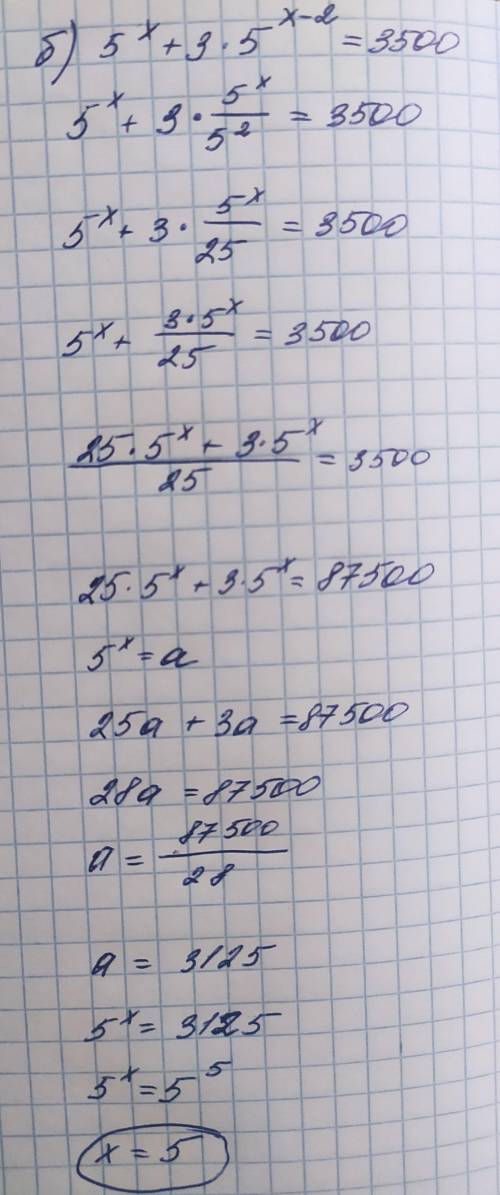 б) 5^x + 3 · 5^(x-2) = 3500
5^x + 3 · 5^x/5^2 = 3500
5^x + 3 · 5^x/25 = 3500
5^x + (3 · 5^x)/25 = 3500
(25 · 5^x + 3 · 5^x)/25 = 3500
25 · 5^x + 3 · 5^x = 87500
5^x = a
25a + 3a = 87500
28a = 87500
a = 87500/28
a = 3125
5^x = 3125
5^x = 5^5
x = 5